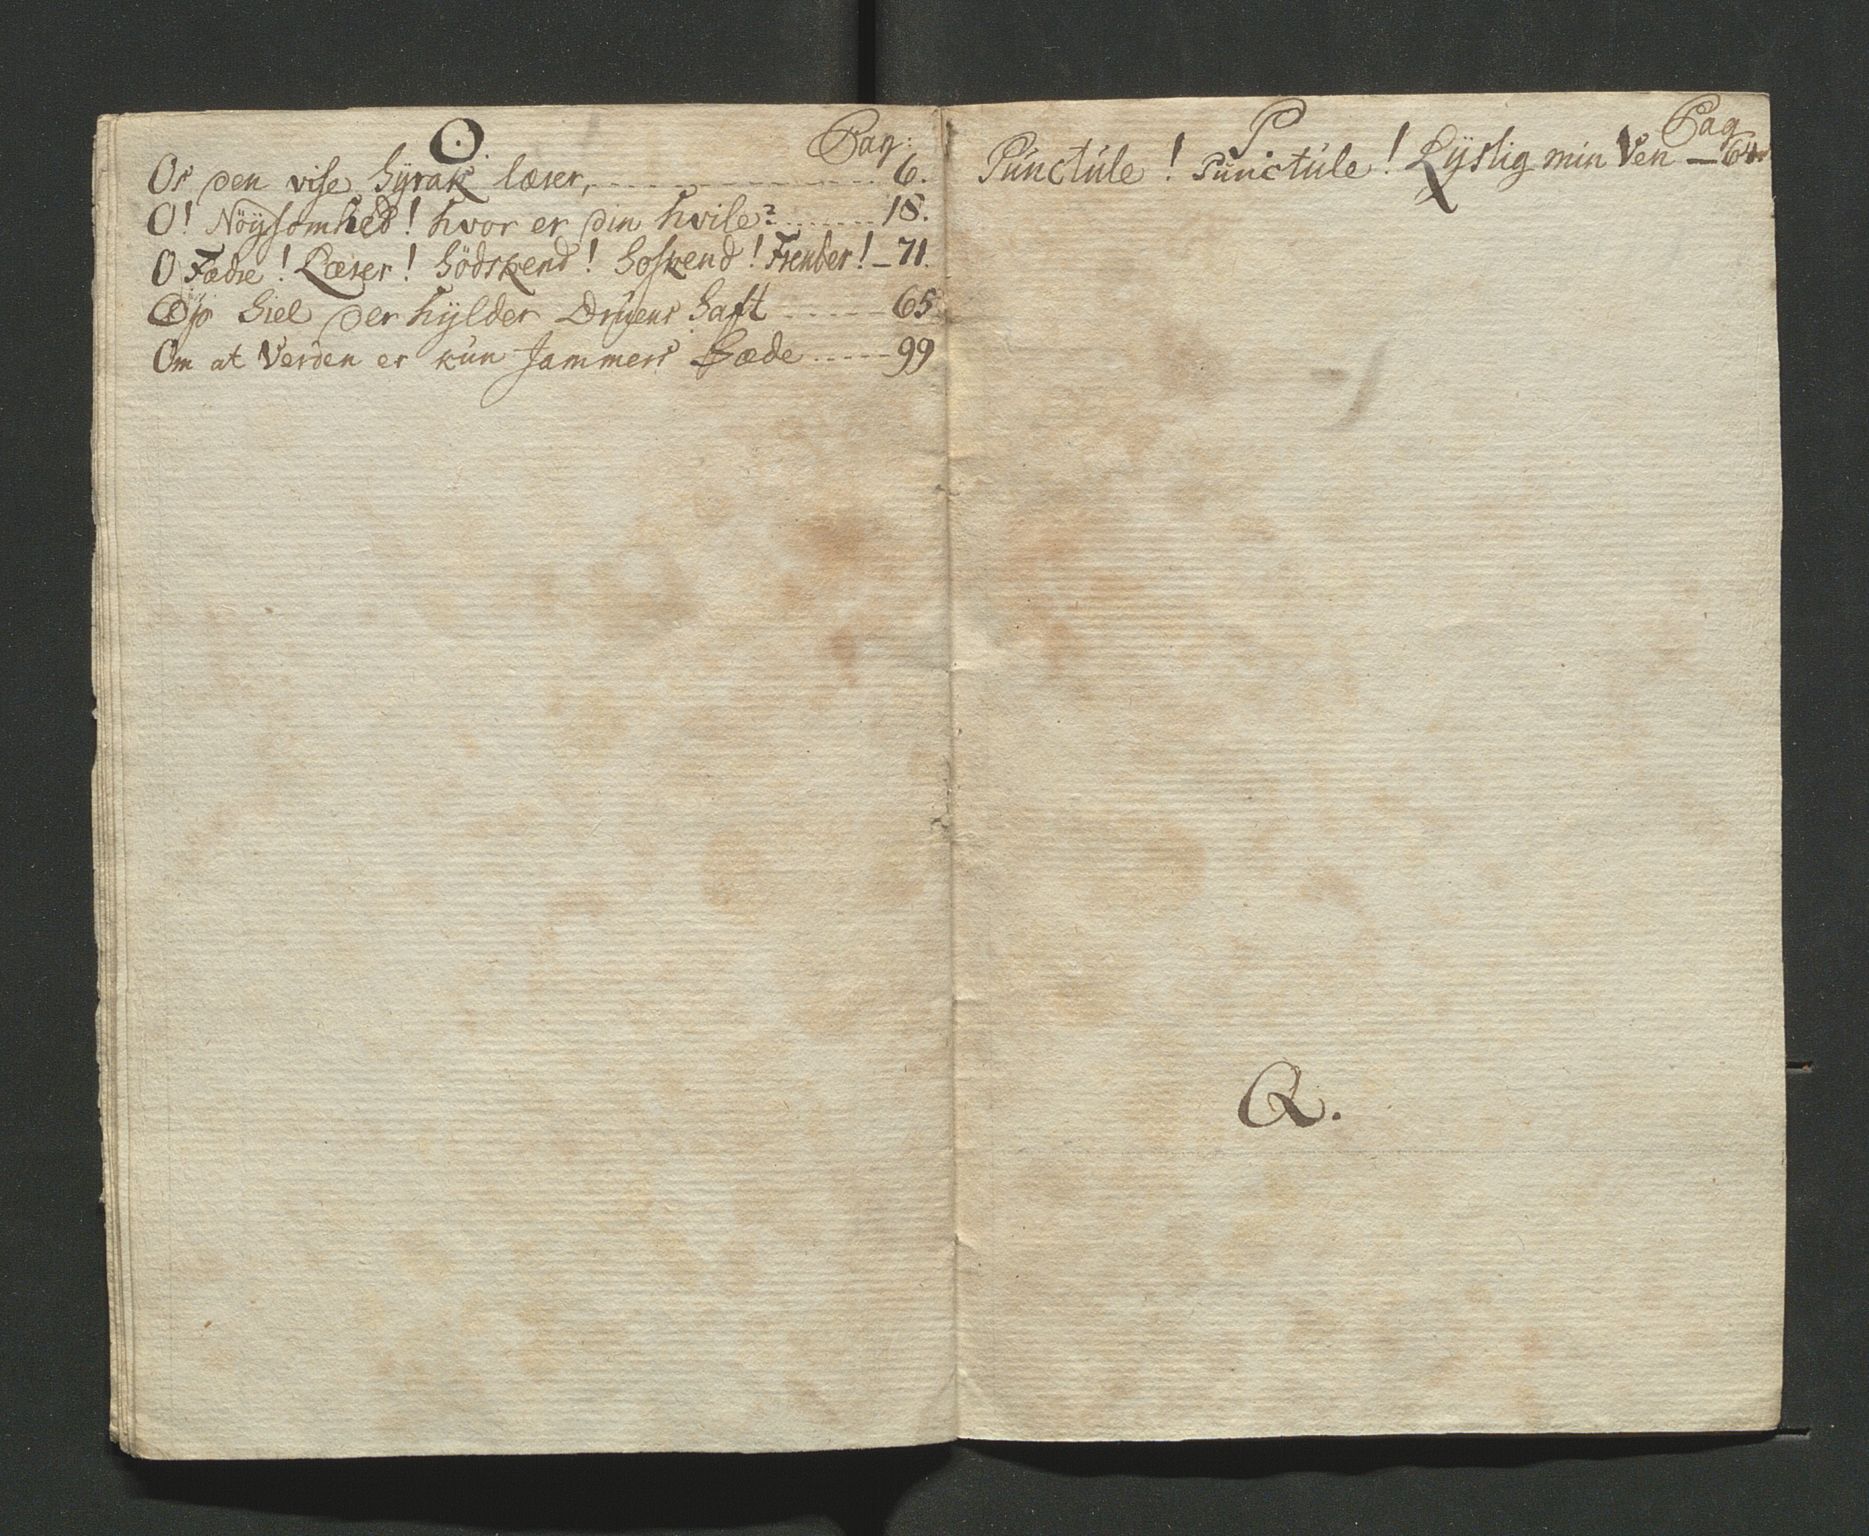 O.
Pag:
Os den vise Syrak lærer, 6.
O! Nöÿsomhed! hvor er din hvile? 18.
O Fædre! Læsere! Södskend! Frender! 71.
Siel der hÿlder Druens Saft 65
Om at Verden er kun Jammers Sæde 99
P.
Pag
Punctule! Punctule! Lÿslig min Ven 64.
Q.